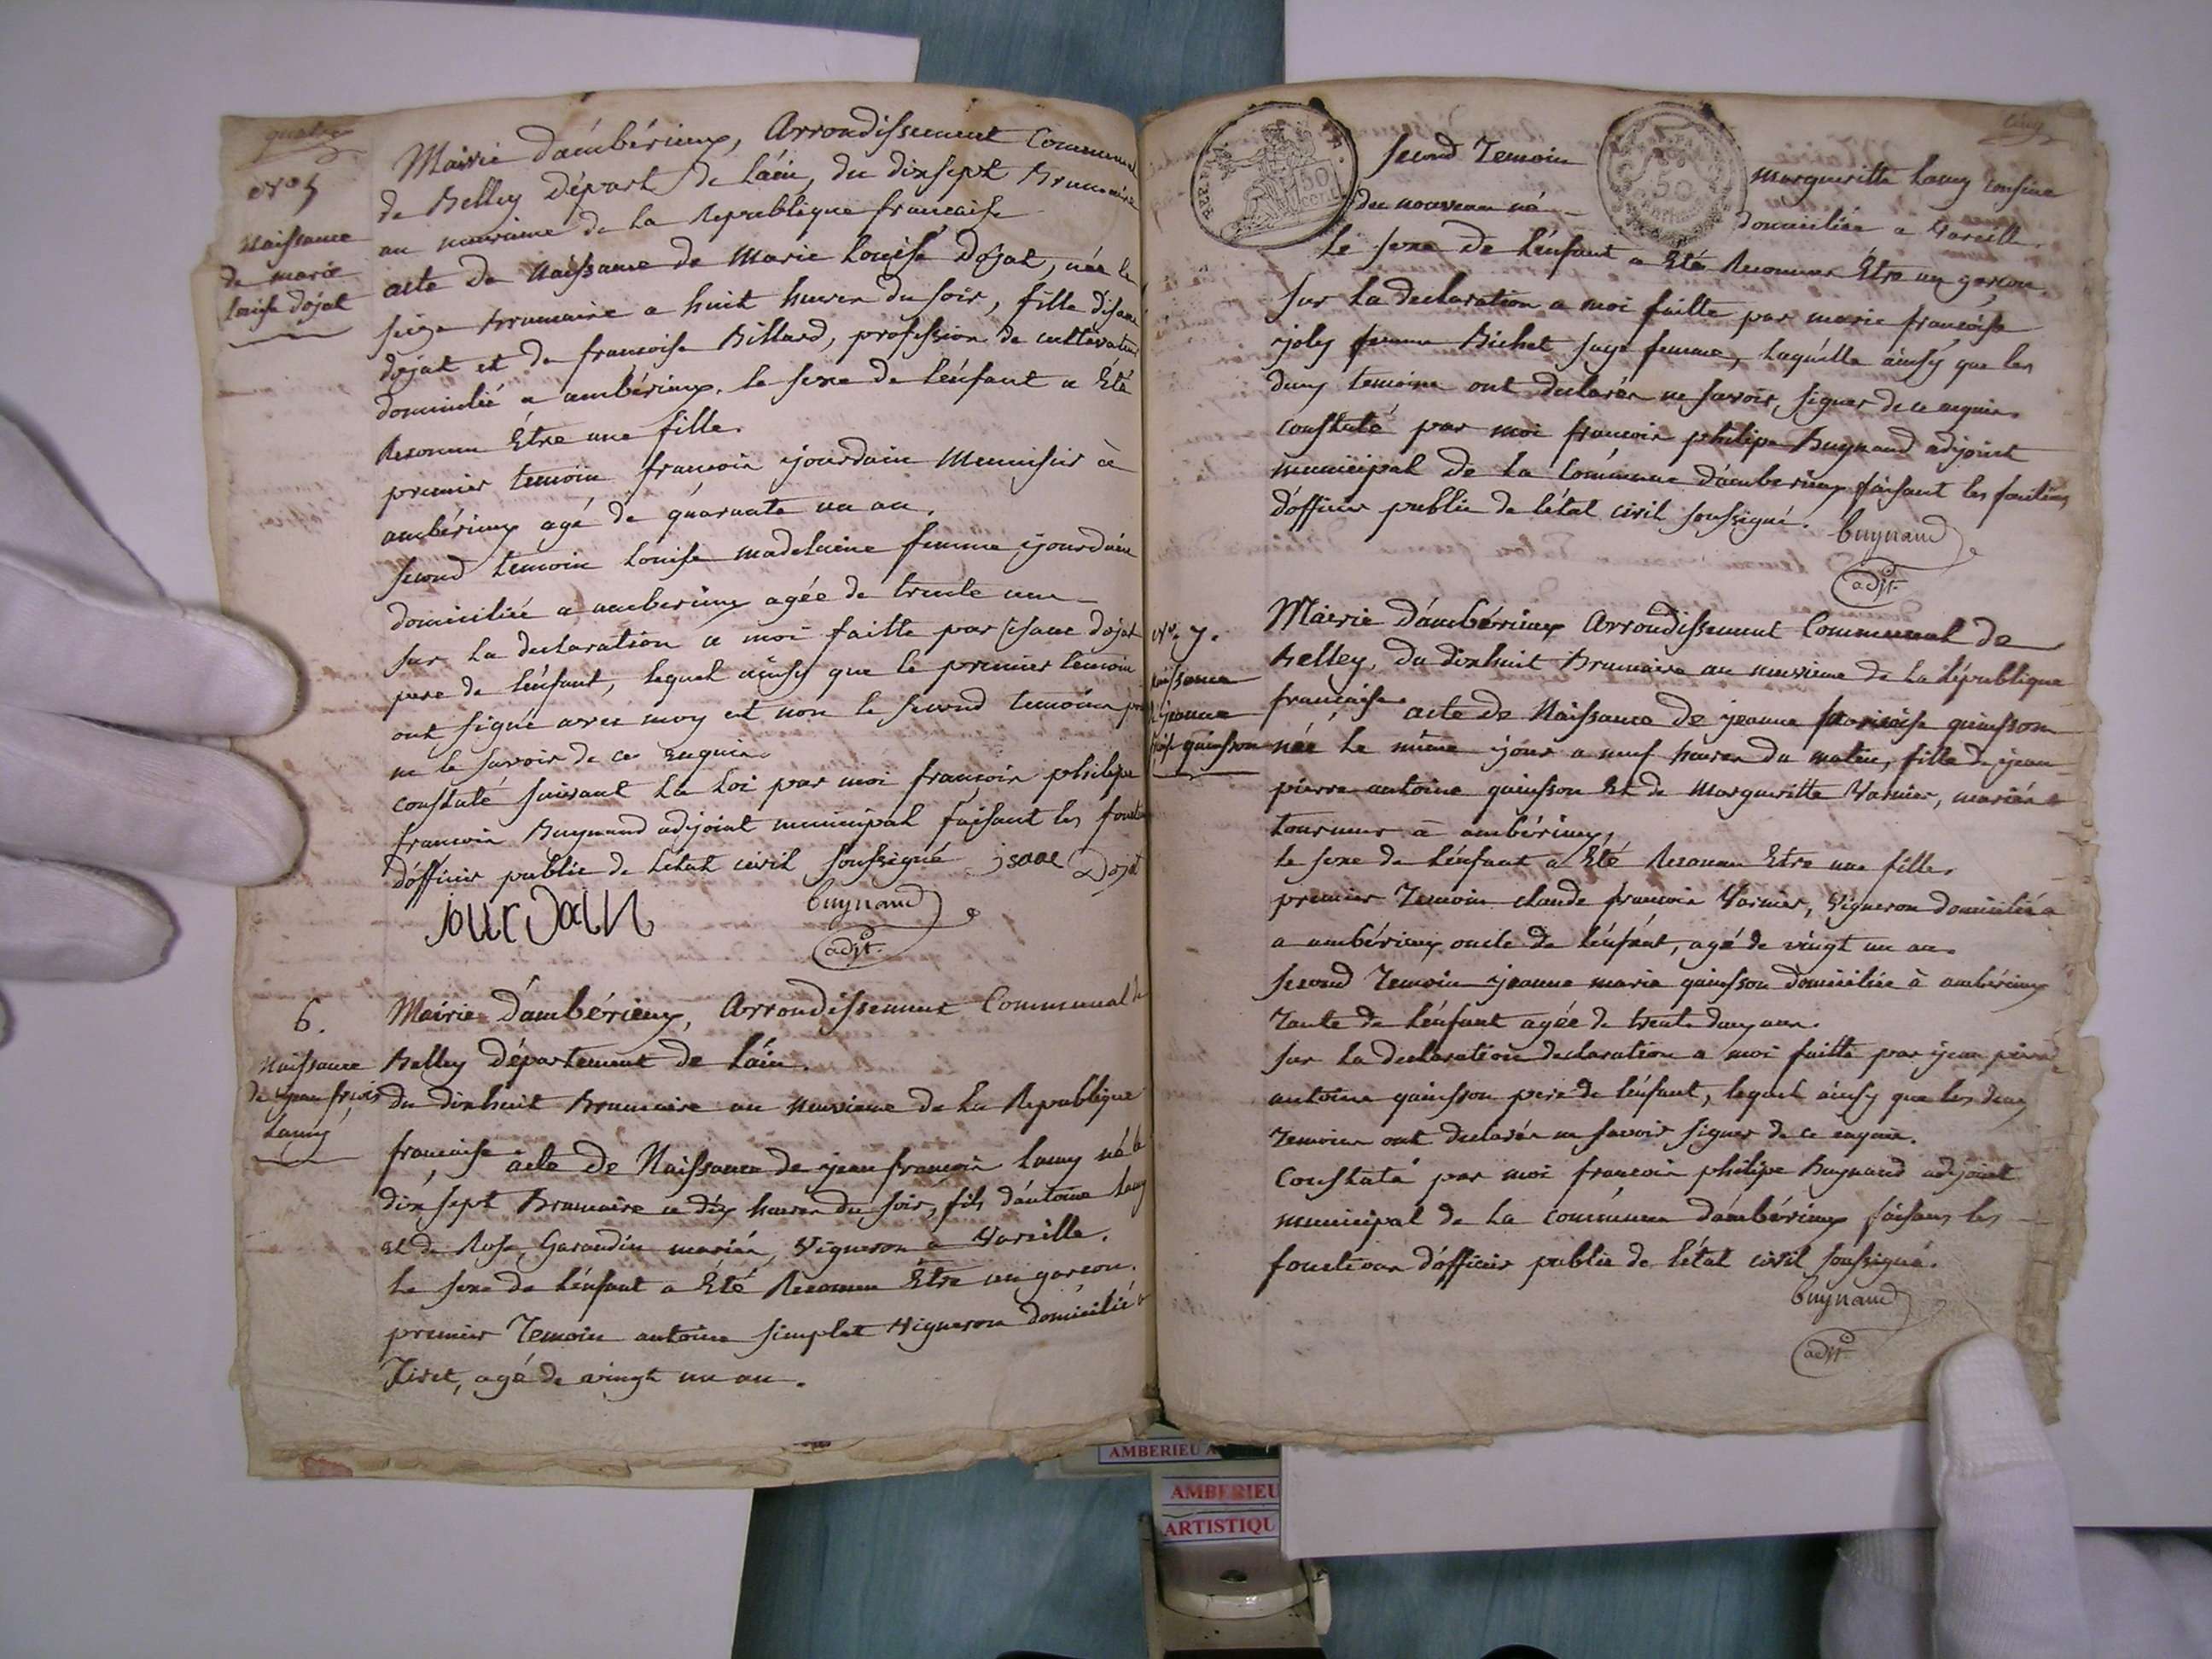 quatre
N° 5
Naissance
de marie
Louise dojat
Mairie d'ambérieux, Arrondissement Communal
de Belley Départ de L'áin, du dixsept Brumaire
an neuvieme de La Republique francaise
acte de Naissance de Marie Louise Dojat, née le
seize Brumaire a huit heures du soir, fille d'isaac
dojat et de francoise Billard, profession de cultivateur
domicilié a ambérieux. le sexe de L'enfant a Eté
Reconnu Etre une fille.
premier temoin francois jourdain Menuisier à
ambérieux agé de quarante un an.
second temoin Louise madelaine femme jourdain
domiciliée a amberieux agée de trente un
sur La declaration a moi faitte par isaac dojat
pere de L'enfant, lequel ainsy que le premier temoin
ont signé avec moy et non le second temoin pour
ne le savoir de ce enquis.
constaté suivant La Loi par moi francois philipe
francois Buynand adjoint municipal faisant les fonctions
d'officier public de L'etat civil soussigné isaac Dojat
jourdain
buynand
adjt.
6.
Naissance
de jean frcois
Lamy
Mairie d'ambérieux, Arrondissement Communal de
Belley département de L'áin.
du dixhuit Brumaire an neuvieme de La Republique
francaise. acte de Naissance de jean francois Lamy né le
dix sept Brumaire a dix heures du soir, fils d'antoine Lamy
et de Rose Garaudin mariés, Vigneron a Vareille.
Le sexe de L'enfant a Eté Reconnu Etre un garcon.
premier Temoin antoine simplet Vigneron domicilié a
Tiret, agé de vingt un an.
cinq
REP. FRA.
50 cent
50 CENTIMES
second Temoin margueritte Lamy cousine
du nouveau né domiciliée a Vareille.
Le sexe de L'enfant a Eté Reconnu Etre un garcon.
sur La declaration a moi faitte par marie francoise
joly femme Bichet sage femme, Laquelle ainsy que les
deux temoins ont declarés ne savoir signer de ce enquis.
constaté par moi francois philipe Buynand adjoint
municipal de La Commune d'amberieux faisant les fonctions
d'officier public de L'etat civil soussigné.
buynand
adjt.
N° 7.
Naissance
de jeanne
quinsson
Mairie d'ambérieux Arrondissement Communal de
Belley, du dixhuit Brumaire an neuvieme de La République
française. acte de Naissance de jeanne francoise quinsson
née Le même jour a neuf heures du matin, fille de jean
pierre antoine quinsson Et de Margueritte Varnier, mariés
tourneur à ambérieux,
le sexe de L'enfant a Eté Reconnu Etre une fille.
premier Temoin claude francois Varnier, Vigneron domicilié
a ambérieux oncle de L'enfant, agé de vingt un an.
second Temoin jeanne marie quinsson domiciliée à ambérieux
Tante de L'enfant agée de trente deux ans.
sur La declaration declaration a moi faitte par jean pierre
antoine quinsson pere de L'enfant, lequel ainsy que les deux
Temoins ont declarés ne savoir signer de ce enquis.
Constaté par moi francois philipe Buynand adjoint
municipal de La commune d'ambérieux faisant les
fonctions d'officier public de L'état civil soussigné.
buynand
adjt.
AMBERIEU
AMBERIEU
ARTISTIQU